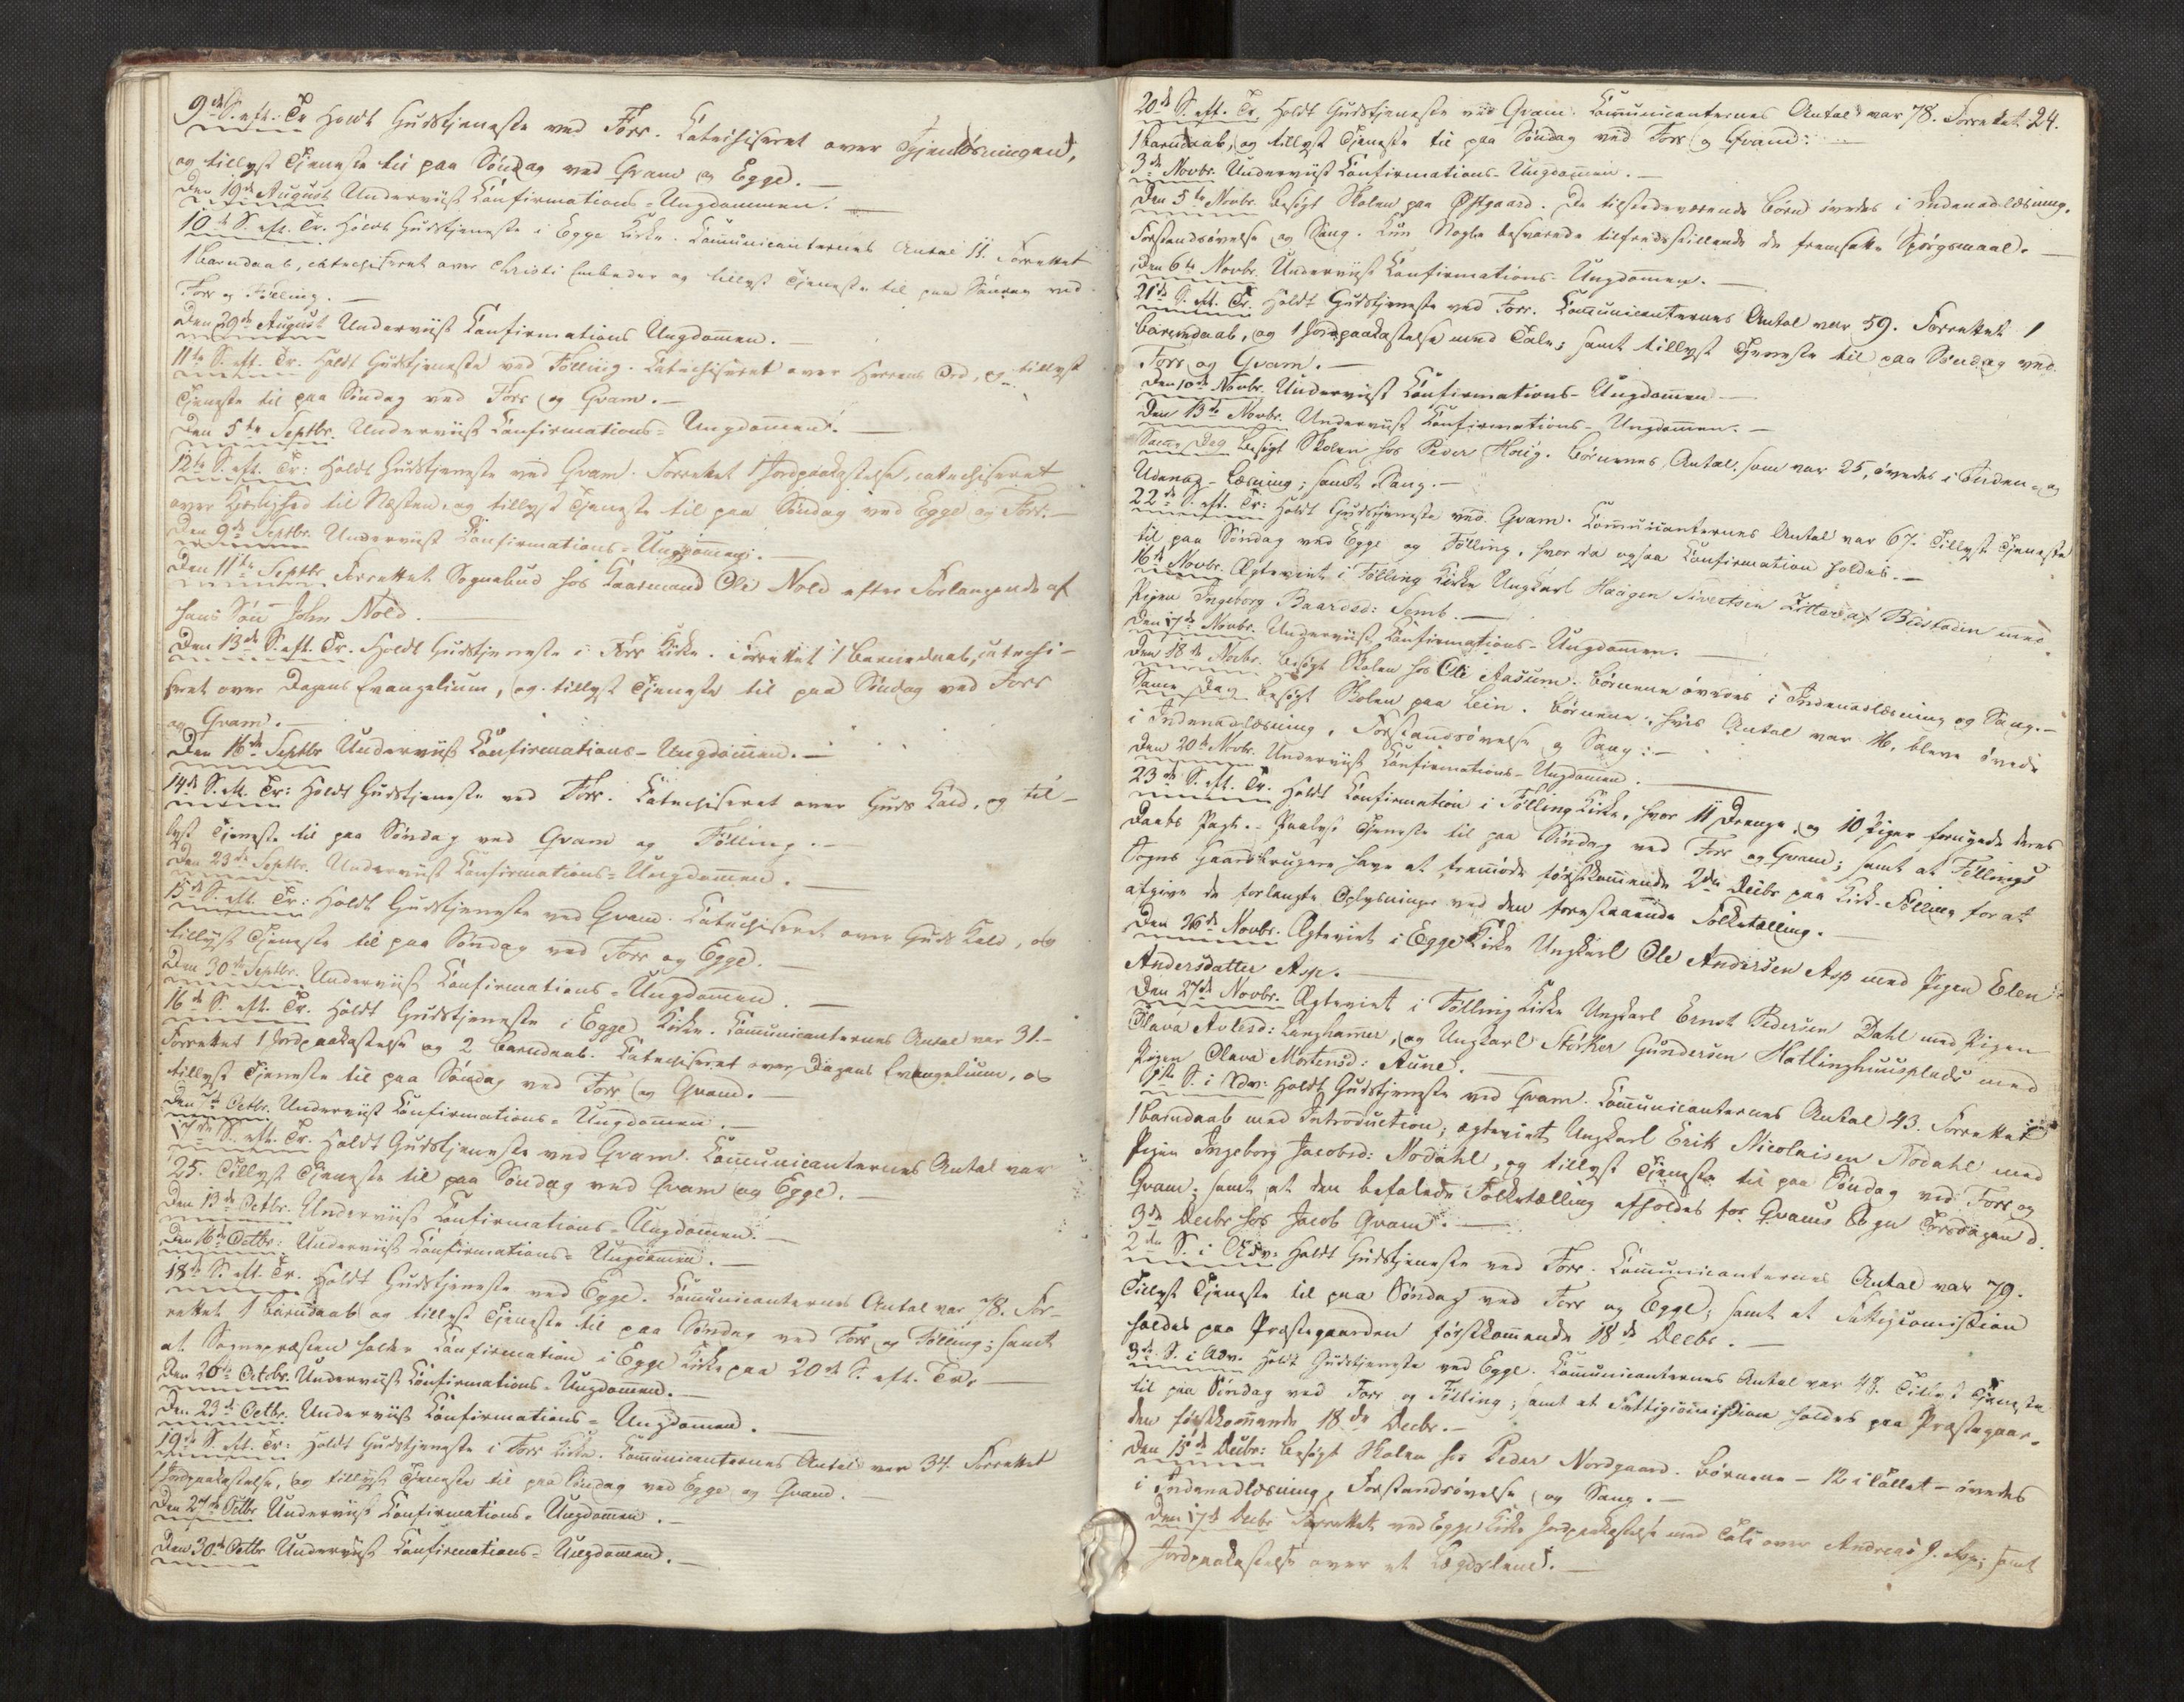 9de S. eft. Tr. Holdt Gudstjeneste ved Forr. Catechiseret over Gjenløsningen,
og tillyst Tjeneste til paa Søndag ved Qvam og Egge. —
Den 19de August Underviist Confirmations-Ungdommen. —
10de S. eft. Tr. Holdt Gudstjeneste i Egge Kirke. Communicanternes Antal 11. Forrettet
1 Barndaab, catechiseret over Christi Embeder og tillyst Tjeneste til paa Søndag ved
Forr og Følling. —
Den 29de August Underviist Confirmations Ungdommen. —
11te S. eft. Tr. Holdt Gudstjeneste ved Følling. Catechiseret over Herrens Ord, og tillyst
Tjeneste til paa Søndag ved Forr og Qvam. —
Den 5te Septbr. Underviist Confirmations-Ungdommen. —
12te S. eft. Tr: Holdt Gudstjeneste ved Qvam. Forrettet 1 Jordpaakastelse, catechiseret
over Kjerlighed til Næsten, og tillyst Tjeneste til paa Søndag ved Egge og Forr. —
Den 9de Septbr. Underviist Confirmations-Ungdommen. —
Den 11te Septbr Forrettet Sognebud hos Kaarmand Ole Nold efter Forlangende af
hans Søn John Nold.
Den 13de S. eft. Tr. Holdt Gudstjeneste i Forr Kirke. Forrettet 1 Barnedaab, catechi-
seret over Dagens Evangelium, og tillyst Tjeneste til paa Søndag ved Forr
og Qvam. —
Den 16de Septbr Underviist Confirmations-Ungdommen. —
14de S. eft. Tr: Holdt Gudstjeneste ved Forr. Catechiseret over Guds Kald, og til-
lyst Tjeneste til paa Søndag ved Qvam og Følling. —
Den 23de Septbr. Underviist Confirmations-Ungdommen. —
15de S. eft. Tr: Holdt Gudstjeneste ved Qvam. Catechiseret over Guds Kald, og
tillyst Tjeneste til paa Søndag ved Forr og Egge. —
Den 30te Septbr. Underviist Confirmations-Ungdommen. —
16de S. eft. Tr. Holdt Gudstjeneste i Egge Kirke. Communicanternes Antal var 31. —
Forrettet 1 Jordpaakastelse og 2 Barndaab. Catechiseret over Dagens Evangelium, og
tillyst Tjeneste til paa Søndag ved Forr og Qvam. —
Den Octbr. Underviist Confirmations-Ungdommen. —
17de S. eft. Tr. Holdt Gudstjeneste ved Qvam. Communicanternes Antal var
25. Tillyst Tjeneste til paa Søndag ved Qvam og Egge. —
Den 13de Octbr. Underviist Confirmations-Ungdommen. —
Den 16de Octbr: Underviist Confirmations-Ungdommen. —
18de S. eft. Tr. Holdt Gudstjeneste ved Egge. Communicanternes Antal var 78. For-
rettet 1 Barndaab og tillyst Tjeneste til paa Søndag ved Forr og Følling; samt
at Sognepræsten holder Confirmation i Egge Kirke paa 20de S. eft. Tr. —
Den 20de Octbr. Underviist Confirmations-Ungdommen. —
Den 23de Octbr. Underviist Confirmations-Ungdommen. —
19de S. eft. Tr: Holdt Gudstjeneste i Forr Kirke. Communicanternes Antal var 34. Forrettet
1 Jordpaakastelse, og tillyst Tjeneste til paa Søndag ved Egge og Qvam.
Den 27de Octbr Underviist Confirmations-Ungdommen. —
Den 30te Octbr Underviist Confirmations-Ungdommen. —
24.
20de S. eft. Tr. Holdt Gudstjeneste ved Qvam. Communicanternes Antal var 78. Forrettet
1 Barndaab, og tillyst Tjeneste til paa Søndag ved Forr og Qvam. —
3de Novbr. Underviist Confirmations-Ungdommen. —
Den 5te Novbr. besøgt Skolen paa Østgaard. De tilstedeværende Børn øvedes i Indenadlæsning,
Forstandsøvelse og Sang. Kun Nogle besvarede tilfredsstillende de fremsatte Spørgsmaal. —
Den 6te Novbr. Underviist Confirmations-Ungdommen. —
21de S. eft. Tr. Holdt Gudstjeneste ved Forr. Communicanternes Antal var 59. Forrettet 1
Barnedaab, og 1 Jordpaakastelse med Tale; samt tillyst Tjeneste til paa Søndag ved
Forr og Qvam. —
Den 10de Novbr. Underviist Confirmations-Ungdommen —
Den 13de Novbr. Underviist Confirmations-Ungdommen. —
Samme Dag besøgt Skolen hos Peder Hoüg. Børnenes Antal, som var 25, øvedes i Inden- og
Udenad-Læsning; samt Sang. —
22de S. eft. Tr: Holdt Gudstjeneste ved Qvam. Communicanternes Antal var 67. Tillyst Tjeneste
til paa Søndag ved Egge og Følling, hvor da ogsaa Confirmation holdes. —
16de Novbr. Ægteviet i Følling Kirke Ungkarl Haagen Sivertsen af Beistaden med
Pigen Ingeborg Baardsd: Semb. —
Den 17de Novbr. Underviist Confirmations-Ungdommen. —
Den 18de Novbr. besøgt Skolen hos Ole Aasum. Børnene øvedes i Indenadlæsning og Sang. —
Samme Dag besøgt Skolen paa Lein. Børnene, hvis Antal var 16, bleve øvede
i Indenadlæsning, Forstandsøvelse og Sang. —
Den 20de Novbr. Underviist Confirmations-Ungdommen. —
23de S. eft. Tr. Holdt Confirmation i Følling Kirke, hvor 11 Drenge og 10 Piger fornyede deres
Daabs Pagt. – Paalyst Tjeneste til paa Søndag ved Forr og Qvam; samt at Føllings
Sogns Gaardbrugere have at fremmøde førstkommende 2den Decbr paa Kirk-Følling for at
afgive de forlangte Oplysninger ved den forestaaende Folketælling. —
Den 26de Novbr. Ægteviet i Egge Kirke Ungkarl Ole Andersen Asp med Pigen Elen
Andersdatter Asp. —
Den 27de Novbr. Ægteviet i Følling Kirke Ungkarl Ernst Pedersen Dahl med Pigen
Olava Avlesd: Langhamer, og Ungkarl Størker Gundersen Hatlinghuusplads med
Pigen Olava Mortensd: Aune. —
1ste S. i Adv: Holdt Gudstjeneste ved Qvam. Communicanternes Antal 43. Forrettet
1 Barndaab med Introduction; ægteviet Ungkarl Erik Nicolaisen Nodahl med
Pigen Ingeborg Jacobsd: Nodahl, og tillyst Tjeneste til paa Søndag ved Forr og
Qvam; samt at den befalede Folketælling afholdes for Qvams Sogn Torsdagen d.
3de Decbr hos Jacob Qvam. —
2den S. i Adv. Holdt Gudstjeneste ved Forr. Communicanternes Antal var 79.
Tillyst Tjeneste til paa Søndag ved Forr og Egge; samt at Fattigcomission
holdes paa Præstegaarden førstkommende 18de Decbr. —
3de S. i Adv. Holdt Gudstjeneste ved Egge. Communicanternes Antal var 48. Tillyst Tjeneste
til paa Søndag ved Forr og Følling; samt at Fattigcomission holdes paa Præstegaar-
den førstkommende 18de Decbr. —
Den 15de Decbr: besøgt Skolen hos Peder Nordgaard. Børnene – 12 i Tallet – øvedes
i Indenadlæsning, Forstandsøvelse og Sang. —
Den 17de Decbr Forrettet ved Egge Kirke Jordpaakastelse med Tale over Andreas J. Asp; samt
Jordpaakastelse over et Lægdslem. —